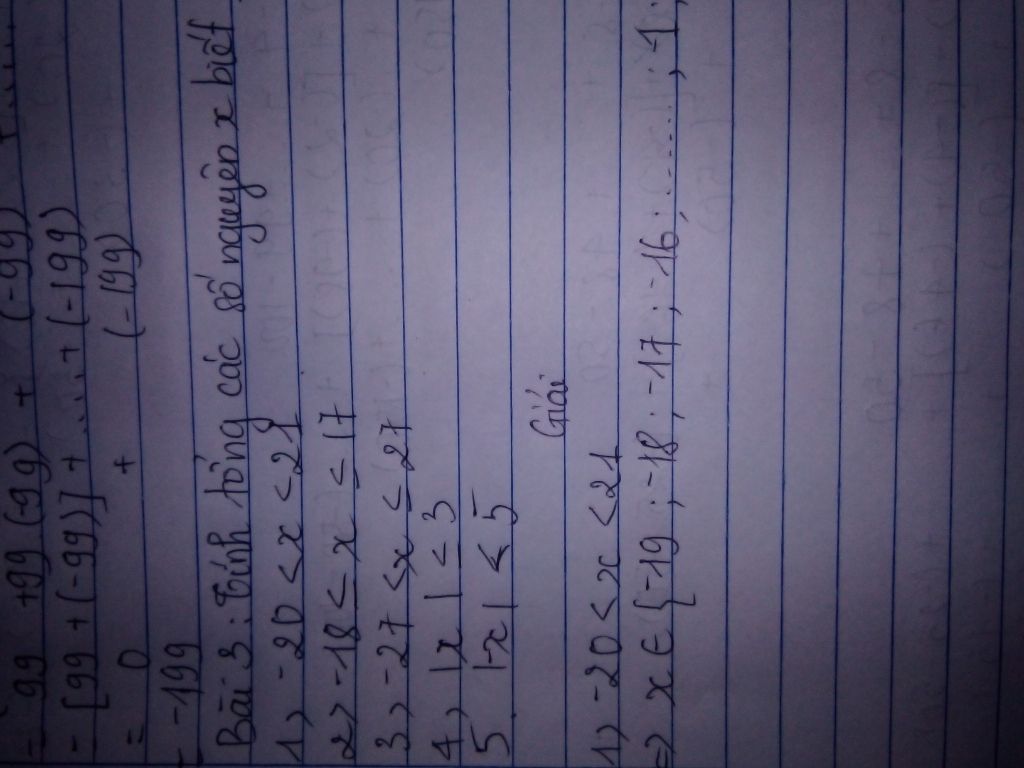 = 99 + 99 (-99) + (-99) + .....
= [99 + (-99)] + ..... + (-199)
= 0 + (-199)
= -199
Bài 3: Tính tổng các số nguyên x biết
1) -20 < x < 21
2) -18 ≤ x ≤ 17
3) -27 < x ≤ 27
4) |x| ≤ 3
5. |-x| < 5
Giải
1) -20 < x < 21
=> x ∈ {-19 ; -18 ; -17 ; -16 ; ......, 1 ;